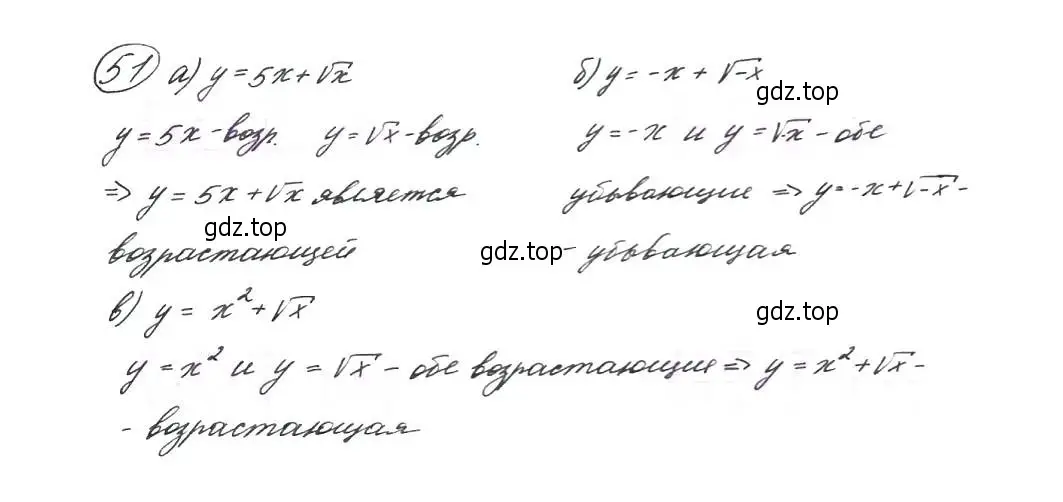 51 а) y = 5x + √x
y = 5x - возр. y = √x - возр.
=> y = 5x + √x является
возрастающей
gdz.top
б) y = -x + √-x
gdz.top
y = -x и y = √-x - обе
убывающие => y = -x + √-x -
gdz.top
- убывающая
в) y = x² + √x
gdz.top
y = x² и y = √x - обе возрастающие => y = x² + √x -
- возрастающая